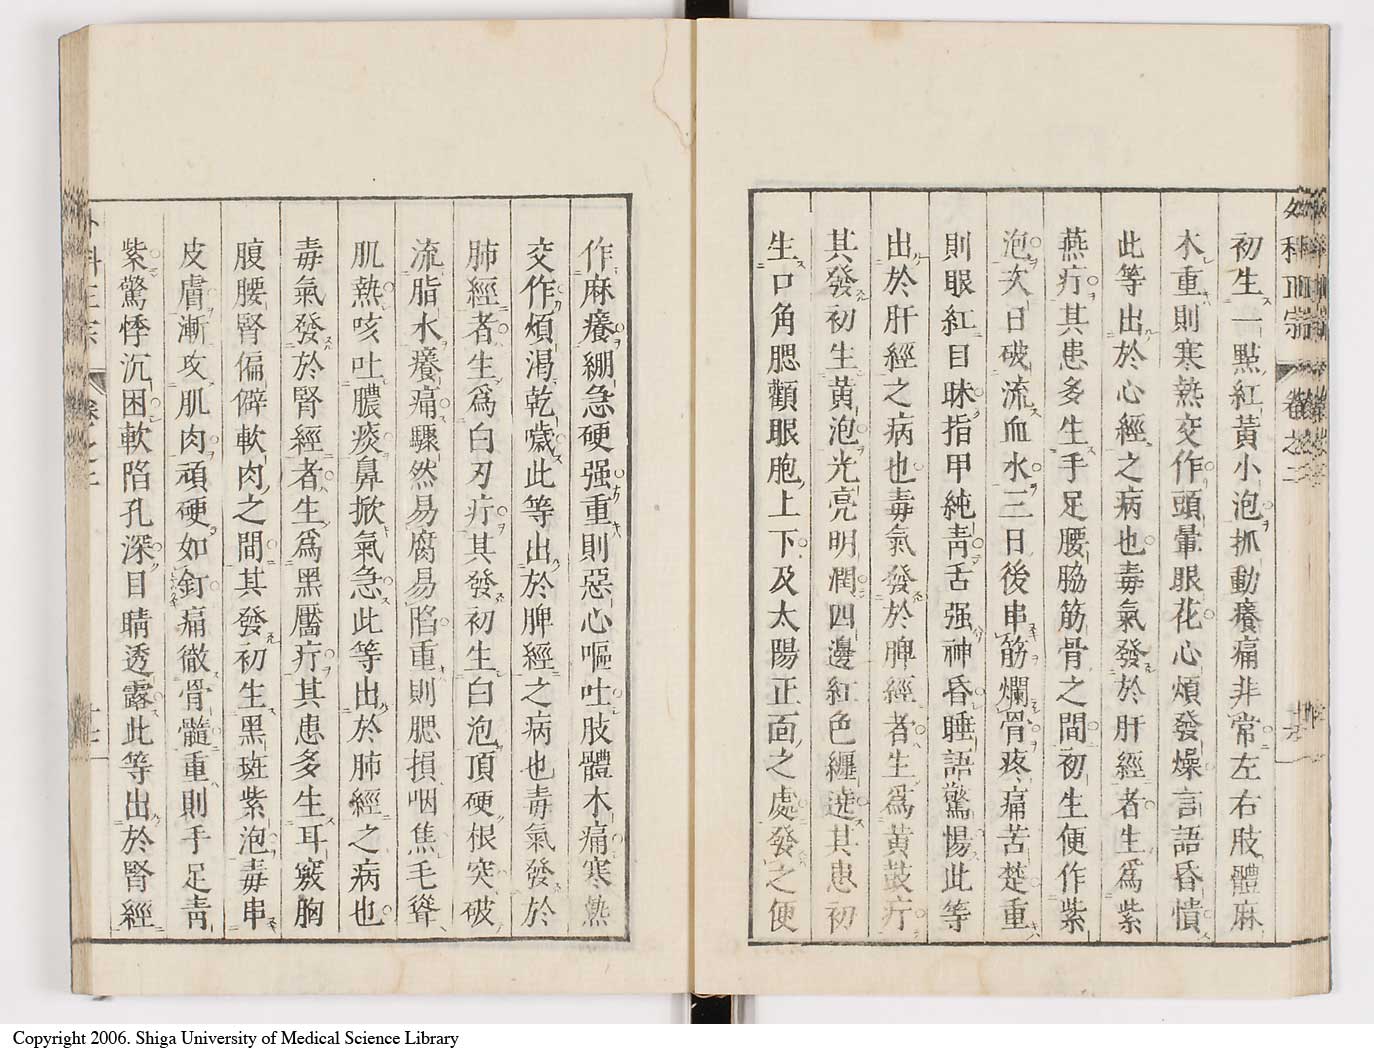 外科正宗 卷之二
初生一點紅黃小泡抓動癢痛非常左右肢體麻
木重則寒熱交作頭暈眼花心煩發燥言語昏憒
此等出於心經之病也毒氣發於肝經者生爲紫
燕疔其患多生手足腰脇筋骨之間初生便作紫
泡次日破流血水三日後串筋爛骨疼痛苦楚重
則眼紅目昧指甲純靑舌强神昏睡語驚惕此等
出於肝經之病也毒氣發於脾經者生爲黃鼓疔
其發初生黃泡光亮明潤四邊紅色纏遶其患初
生口角腮顴眼胞上下及太陽正面之處發之便
作麻癢綳急硬强重則惡心嘔吐肢體木痛寒熱
交作煩渴乾噦此等出於脾經之病也毒氣發於
肺經者生爲白刃疔其發初生白泡頂硬根突破
流脂水癢痛驟然易腐易陷重則腮損咽焦毛聳
肌熱咳吐膿痰鼻掀氣急此等出於肺經之病也
毒氣發於腎經者生爲黑靨疔其患多生耳竅胸
腹腰腎偏僻軟肉之間其發初生黑斑紫泡毒串
皮膚漸攻肌肉頑硬如釘痛徹骨髓重則手足靑
紫驚悸沉困軟陷孔深目睛透露此等出於腎經
Copyright 2006. Shiga University of Medical Science Library